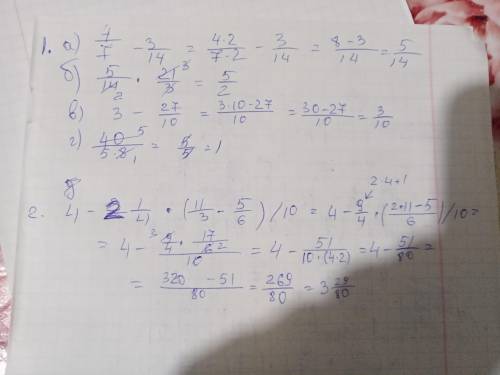 1. а) 4/7 - 3/14 = 4·2/7·2 - 3/14 = 8-3/14 = 5/14
б) 5/14 · 21/3 = 5/2
2 3
в) 3 - 27/10 = 3·10-27/10 = 30-27/10 = 3/10
г) 40 5/5·8 1 = 5/5 = 1
2·4+1
2. 4 - 2 1/4 · (11/3 - 5/6)/10 = 4 - 9/4 · (2·11-5/6)/10 =
= 4 - 3 9/4 · 17/6 2/10 = 4 - 51/10·(4·2) = 4 - 51/80 =
= 320 - 51/80 = 269/80 = 3 29/80